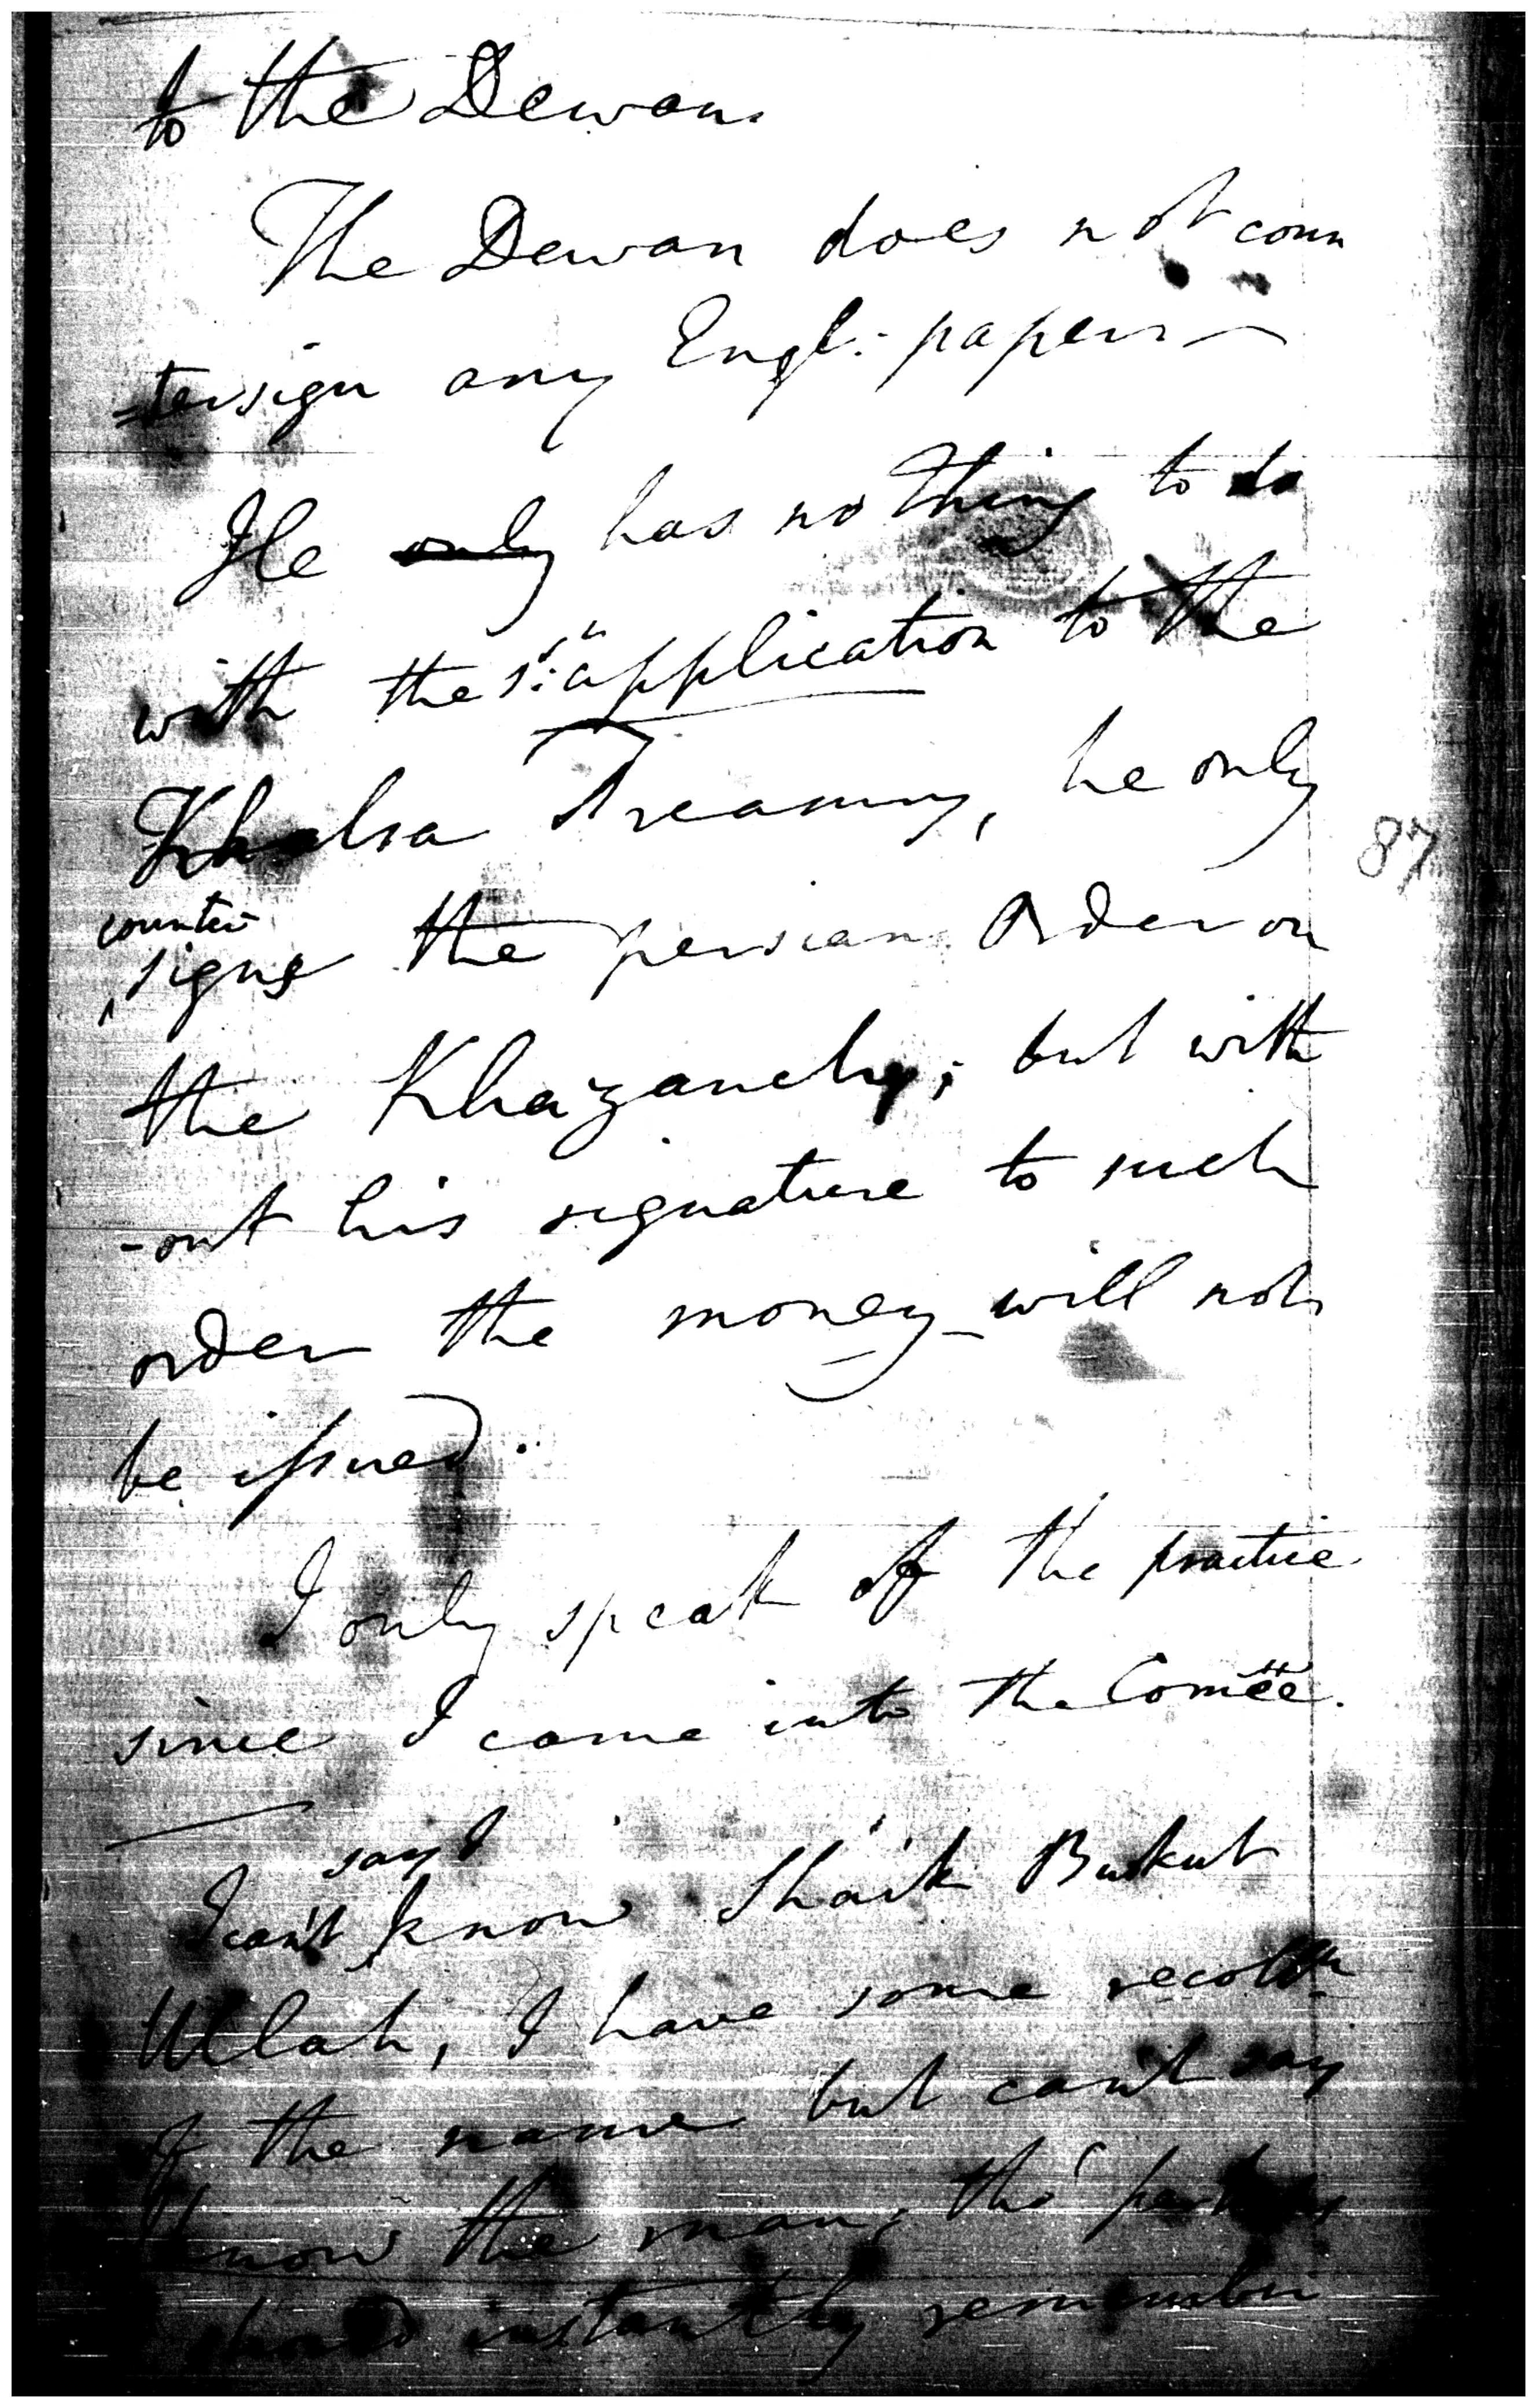 to the Dewan.
The Dewan does not coun
=tersign any Engl: papers—
He only has nothing to do
with the 1st application to the
Khalsa Treasury, he only
counter-
signs the persian Order on
the Khazanchy; but with
-out his signature to such
order the money will not
be issued.
I only speak of the practice
since I came into the Comttee.
87
say I
I can't know Shaik Burkut
Ullah, I have some recolln
of the name but can't say I
know the man, tho' perhaps
should instantly remember